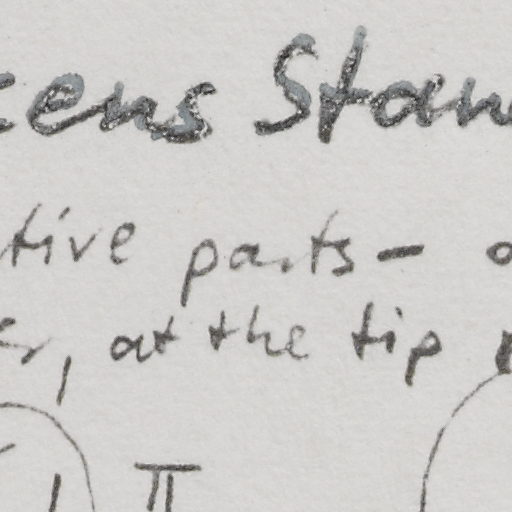 cens Stan
tive parts - o
er, at the tip
II